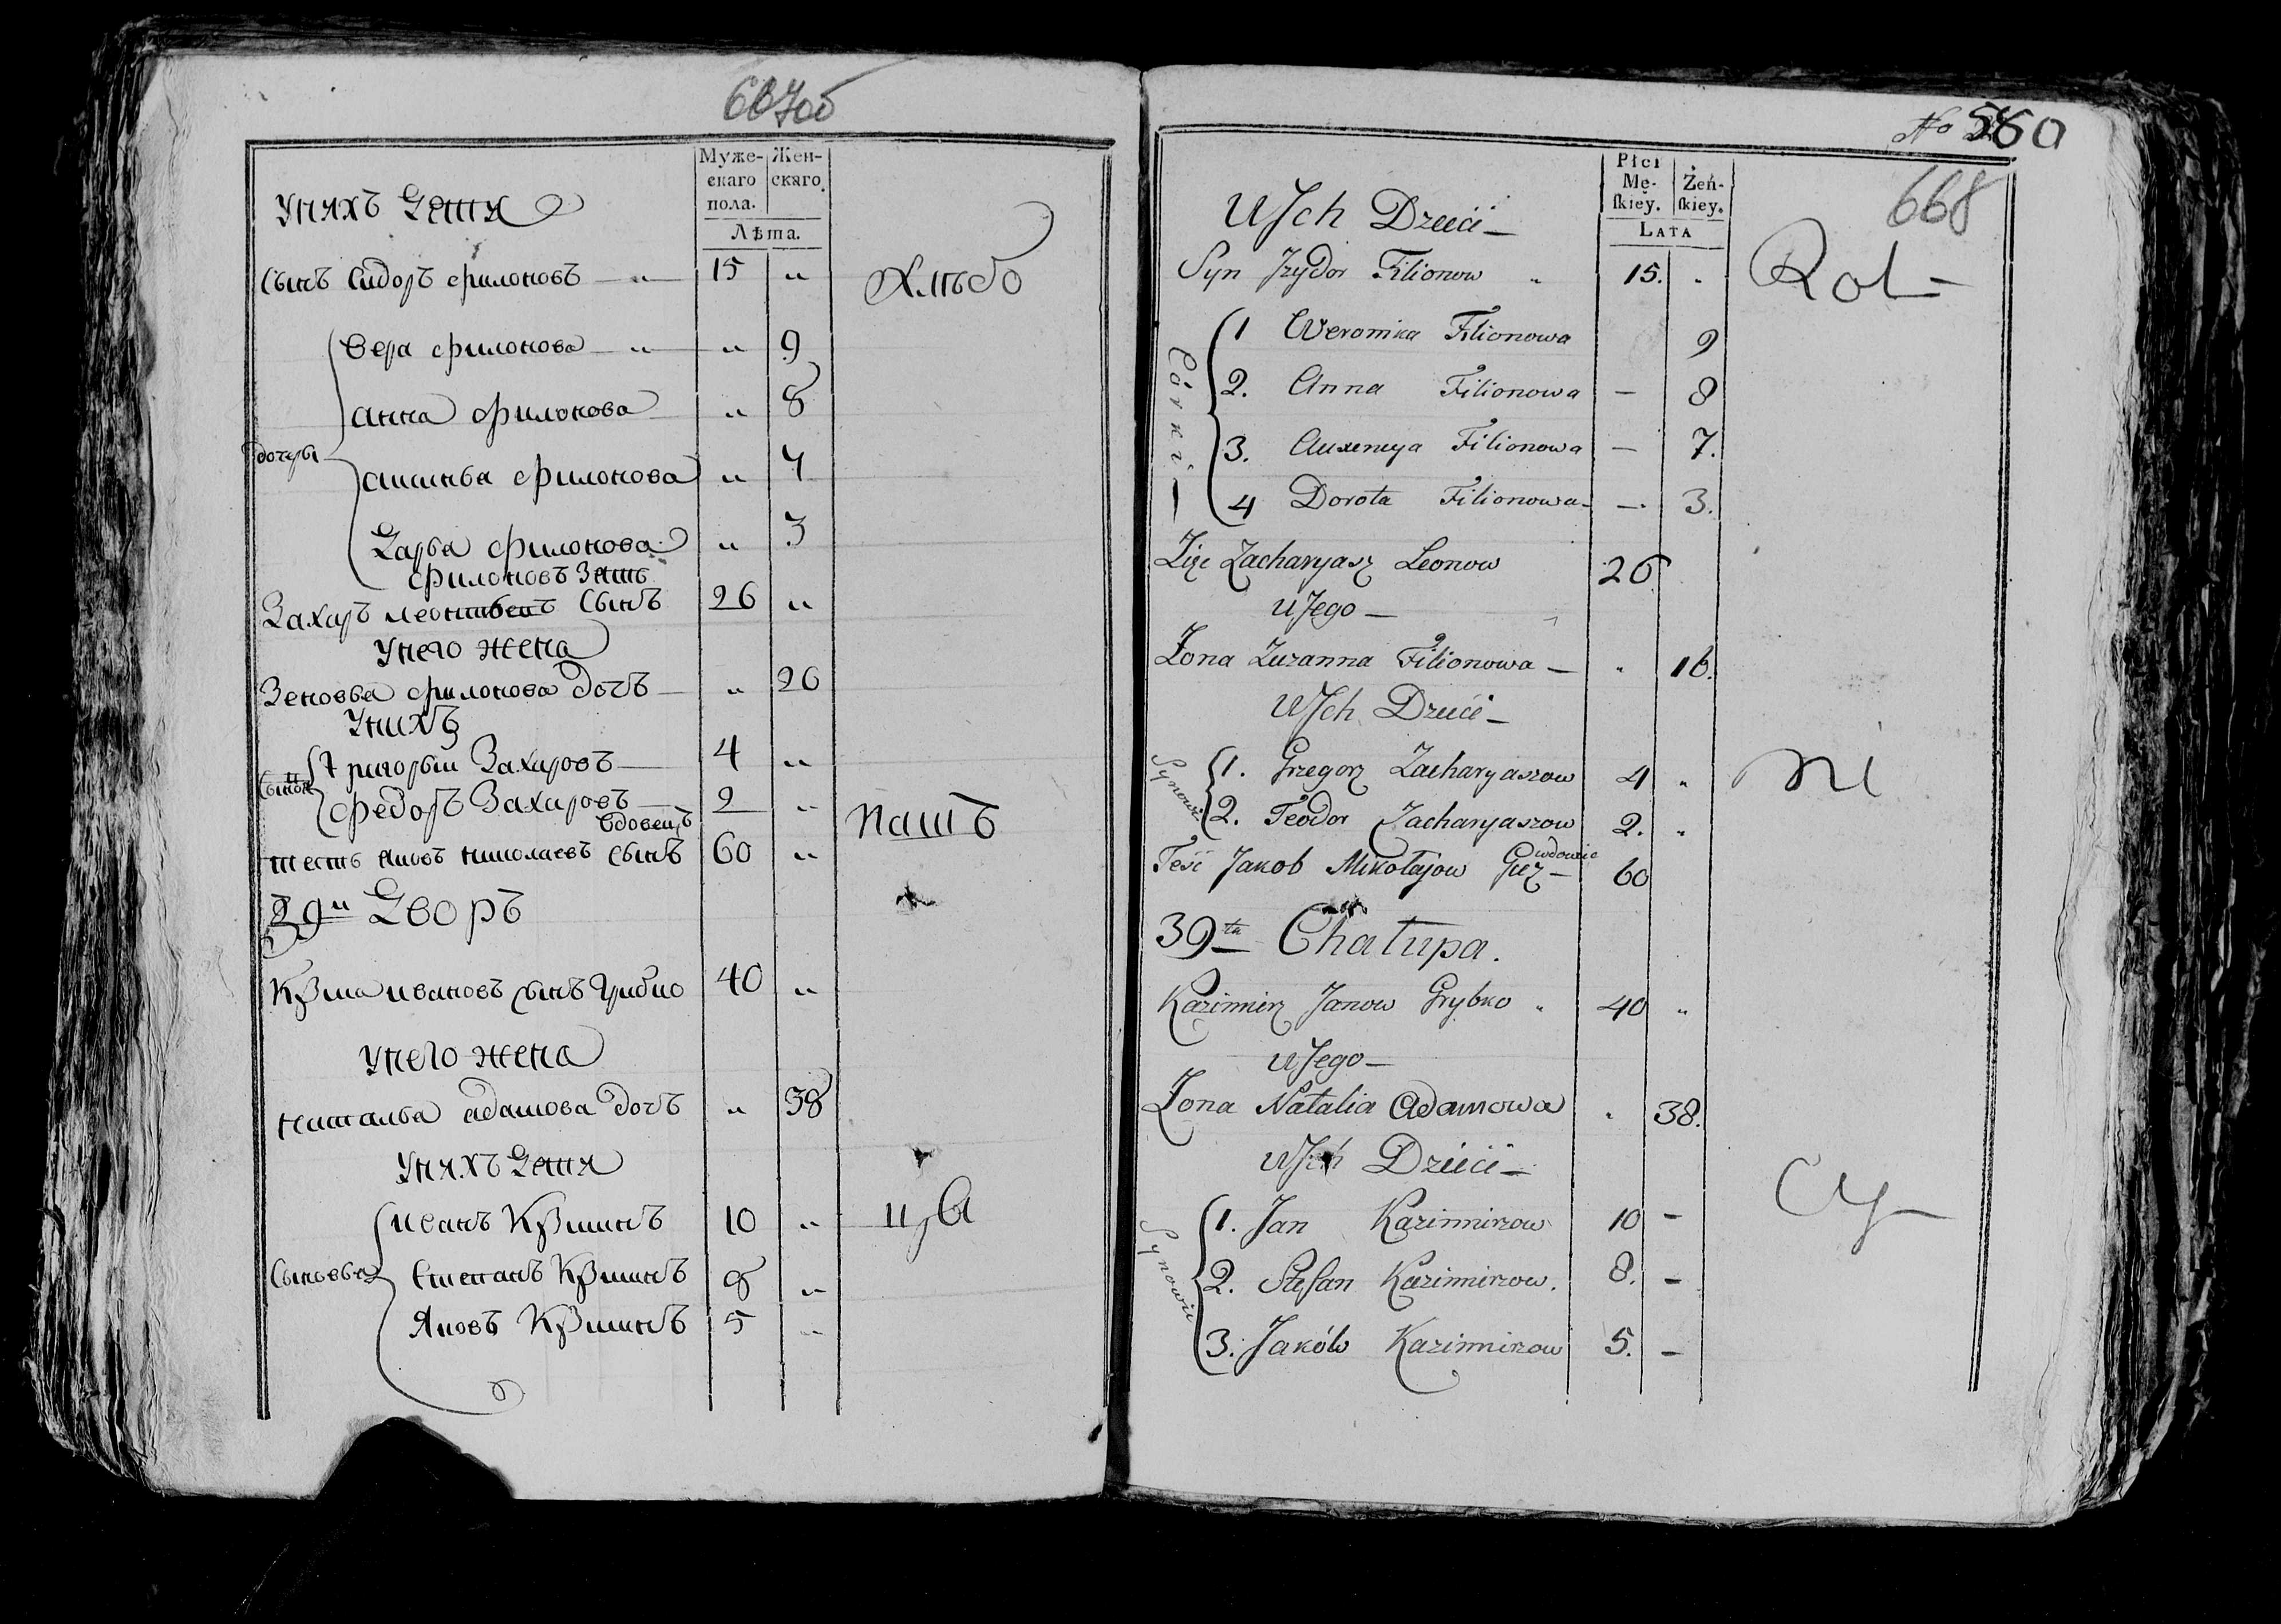 667об
Муже- Жен-
скаго скаго.
пола.
Лѣта.
Унихъ Дети
Сынъ Сидоръ Филоновъ — „ 15 „
Хлѣбо
Вера Филонова — „ „ 9
анна Филонова „ 8
дочери
аксинья Филонова „ 7
Дарья Филонова „ 3
Филоновъ Зять
Захаръ Сынъ 26 „
Унего жена
Зеновья Филонова дочь „ 26
Унихъ
Григорьи Захаровъ 4 „
Федоръ Захаровъ 2 „
вдовецъ
пашъ
тесть Яковъ Николаевъ Сынъ 60 „
39и Дворъ
Кузма ивановъ сынъ Грибко 40 „
Унего жена
Наталья адамова дочь „ 38
Унихъ Дети
цы
иванъ Кузминъ 10 „
Сыновья Степанъ Кузминъ 8 „
Яковъ Кузминъ 5 „
No 560
668
Płci
Mę- Żeń-
skiey. skiey.
Lata
UJch Dzieci —
Syn Jzydor Filionow „ 15. „
Rol —
Córki —
1 Weronika Filionowa 9
2. Anna Filionowa — 8
3. Auxenyja Filionowa — 7.
4 Dorota Filionowa — 3.
Zięc Zacharyasz Leonow 26
uJego —
Żona Zuzanna Filionowa — „ 16.
UJch Dzieci —
Synowie
1. Grzegorz Zacharyaszow 4 „
ni
2. Teodor Zacharyaszow 2. „
Teść Jakob Mikołajow — 60
39ta Chałupa.
Kazimierz Janow Grybko „ 40 „
uJego —
Żona Natalia Adamowa „ 38.
UJch Dzieci —
cy —
Synowie
1. Jan Kazimirzow 10 —
2. Stefan Kazimirzow. 8. —
3. Jakób Kazimirzow 5. —